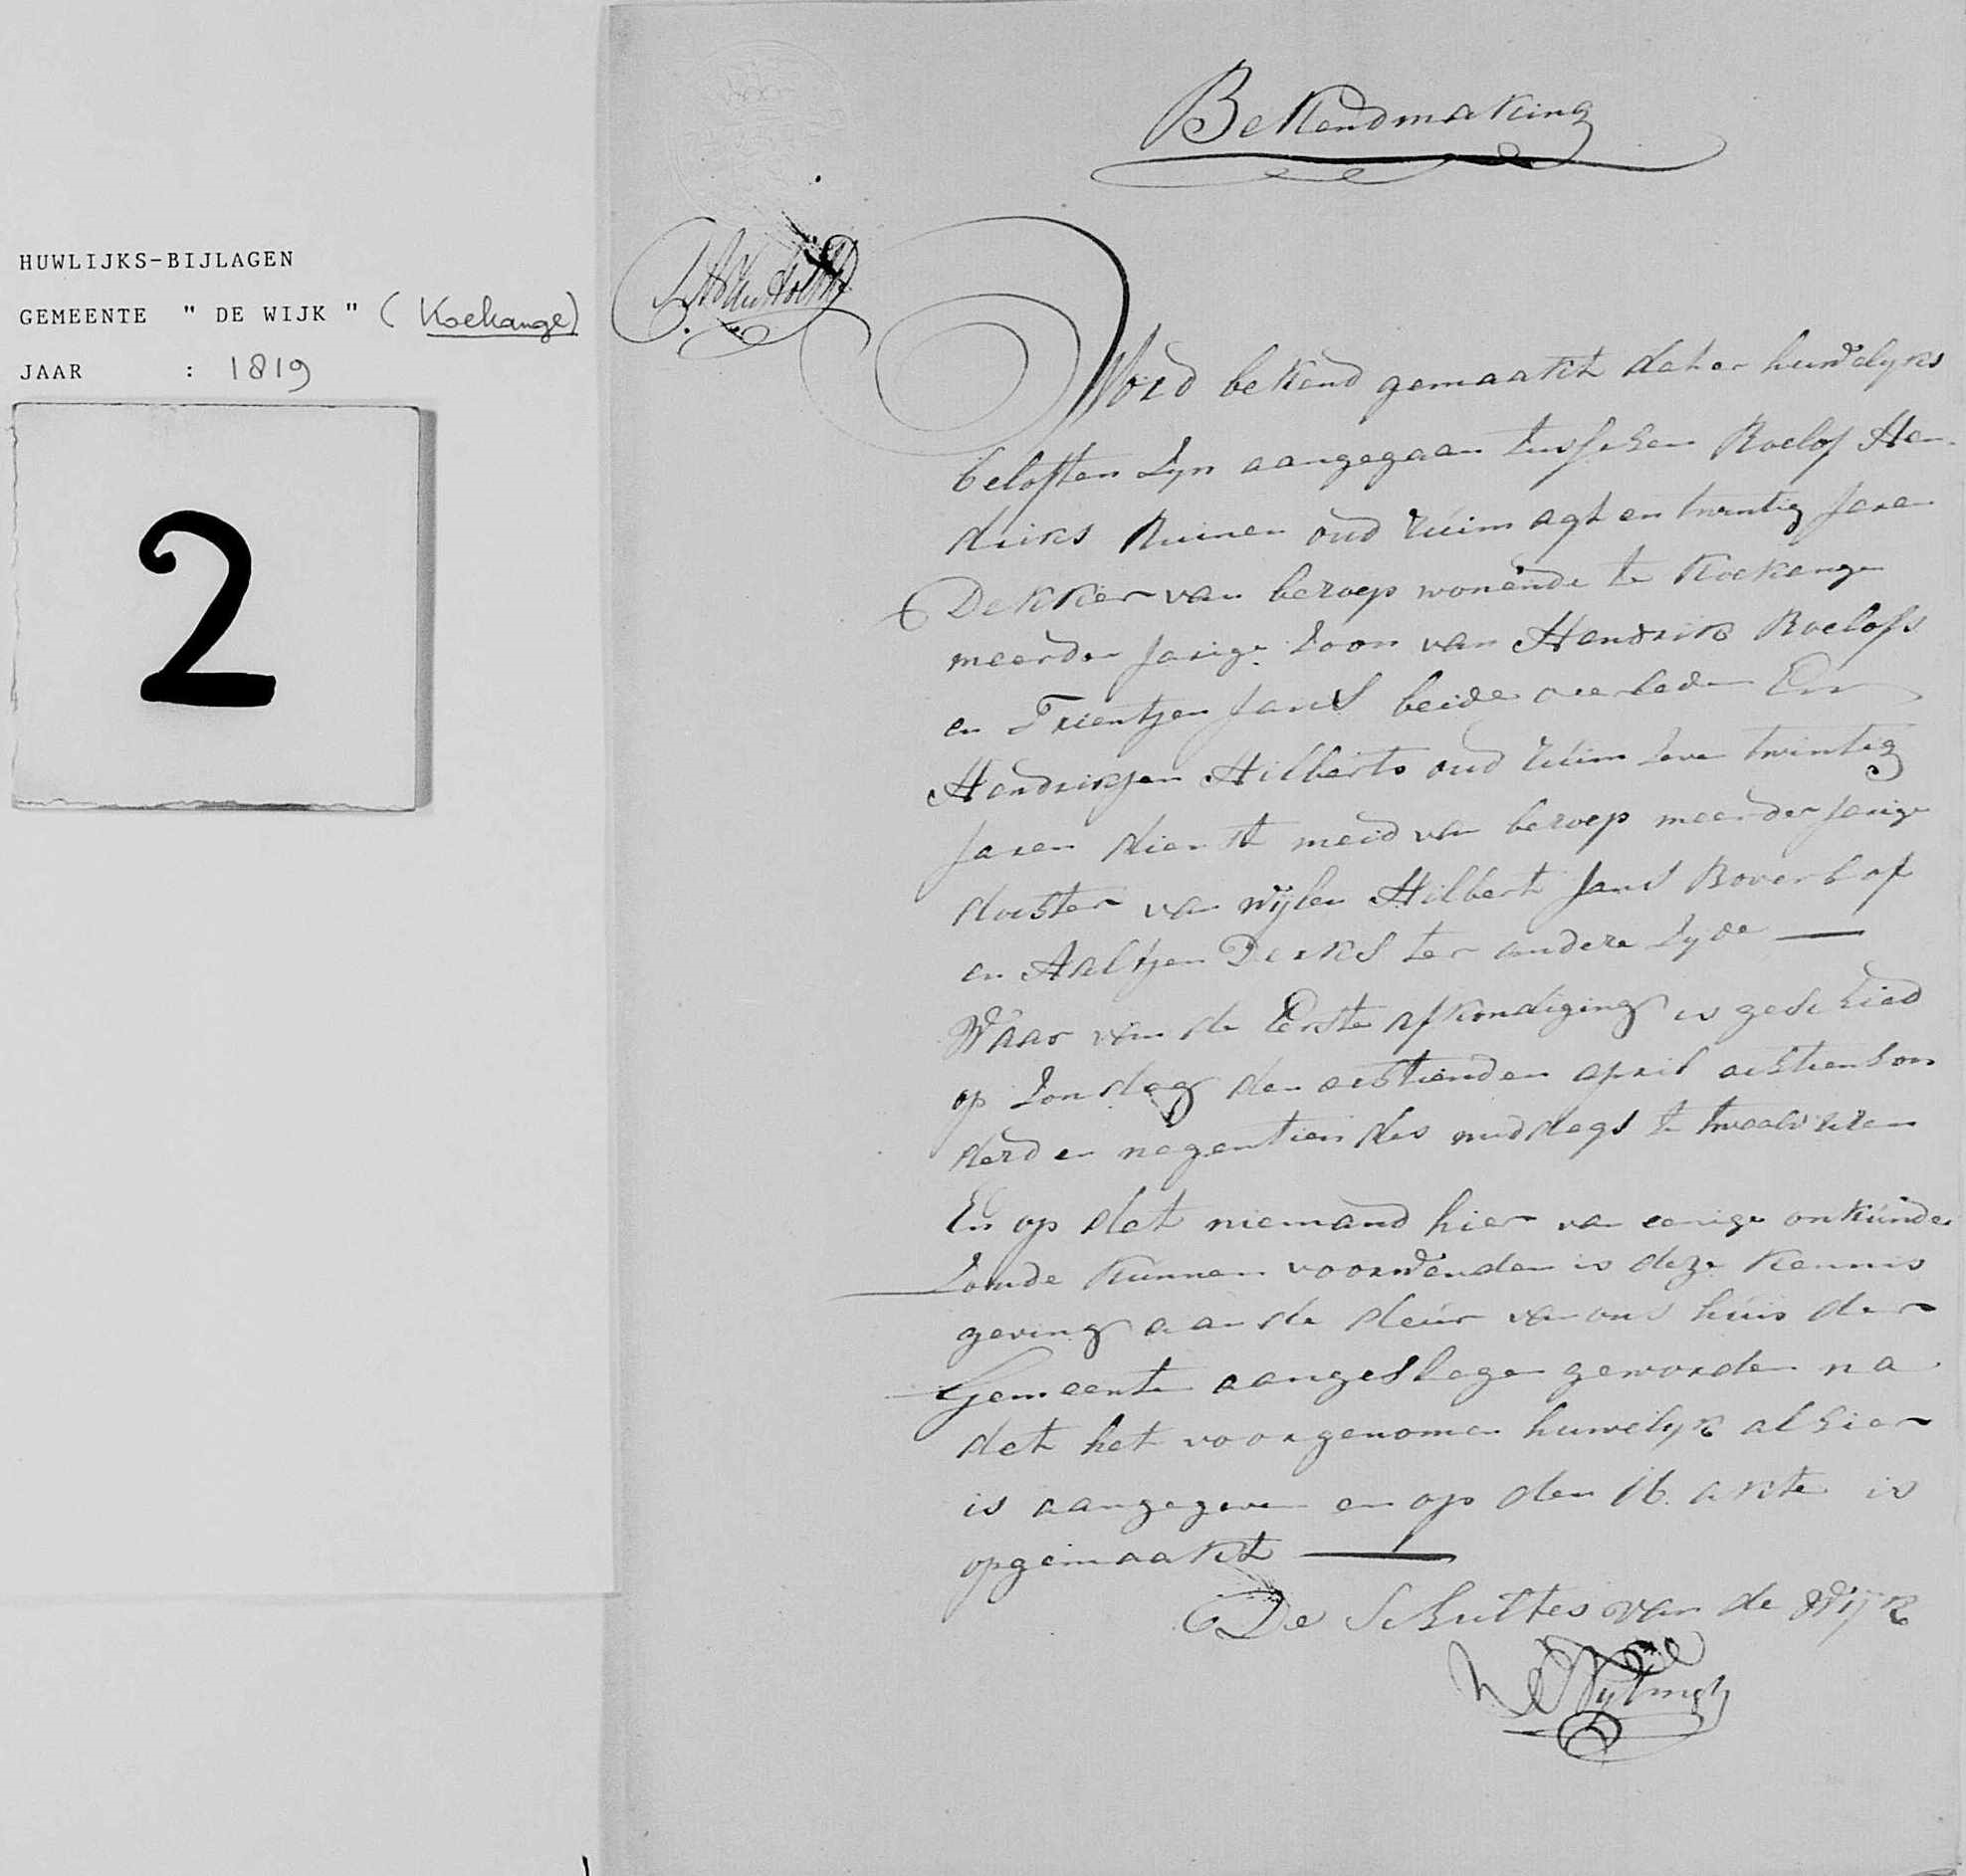 HUWLIJKS-BIJLAGEN
GEMEENTE " DE WIJK " (Koekange)
JAAR : 1819
2
Bekendmaking
Word bekend gemaakt dat er huwelyks
beloften zyn aangegaan tusschen Roelof Hen-
driks Ruinen oud ruim agt en twintig Jaren
Dekker van beroep wonende te Koekange
meerder Jarige zoon van Hendrik Roelofs
en Trientjen Jans beide overleden En
Hendrikjen Hilberts oud ruim zeven twintig
Jaren dienst meid van beroep meerder Jarige
dochter van wijlen Hilbert Jans Boverhof
en Aaltjen Derks ter andere zyde —
Waar van de Eerste afkondiging is geschied
op Zondag den achtienden april achtienhon
derd en negentien des middags te twaalv uren
En op dat niemand hier van eenige onkunde
zoude kunnen voorwenden is deze kennis
geving aan de deur van ons huis der
Gemeente aangeslagen geworden na
dat het voorgenomen huwelyk alhier
is aangegeven en op den 16. akte is
opgemaakt —
De Schultes van de Wijk